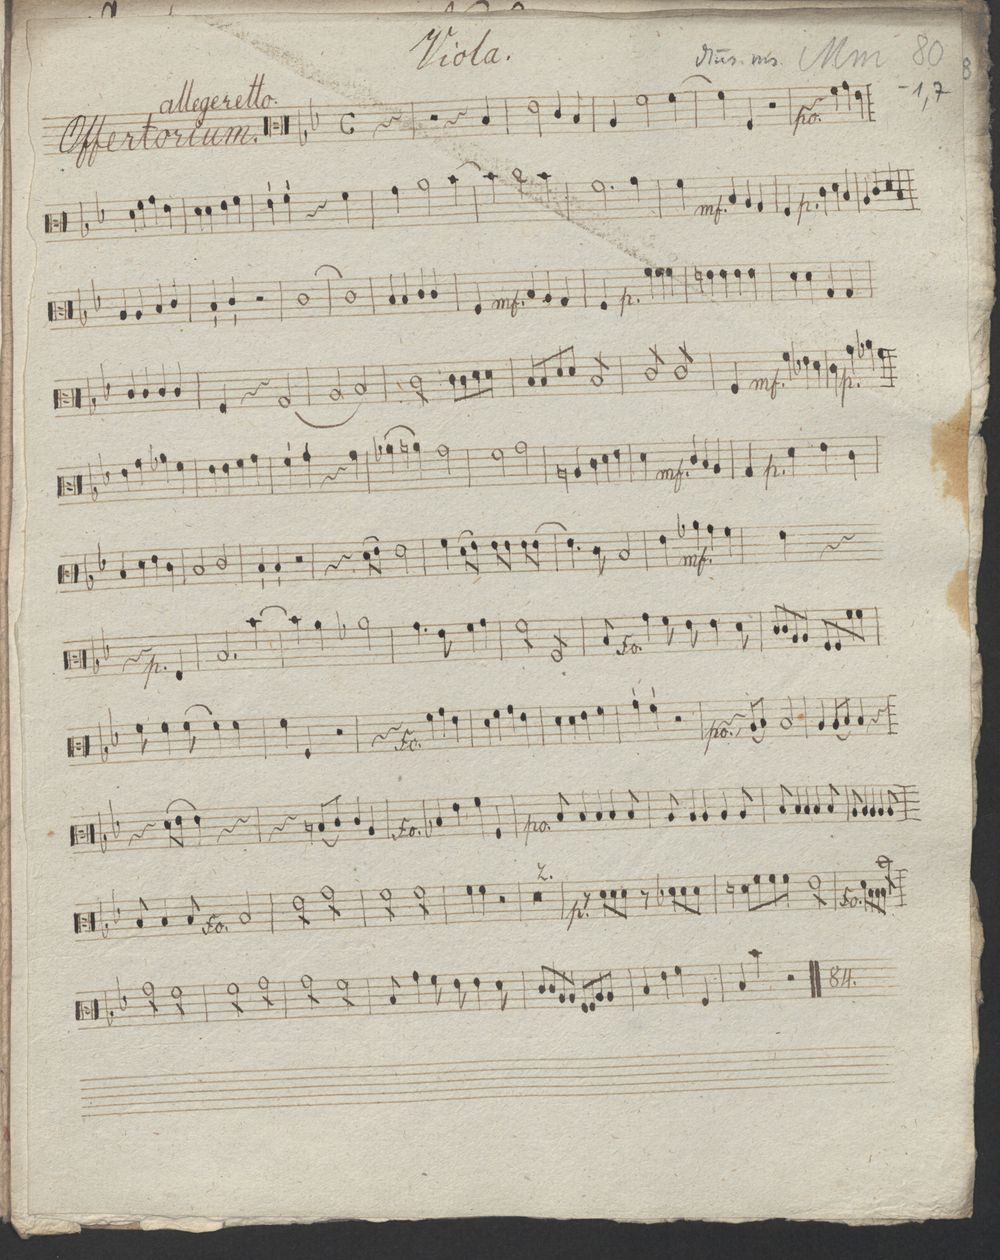 Viola.
Mus. ms. Mm 80
8
-1,7
allegeretto.
Offertorium.
po.
mf. p.
mf. p.
mf. p.
mf. p.
mf.
p. Fo.
Fo. po.
Fo. po.
Fo. 2. p. Fo.
84.